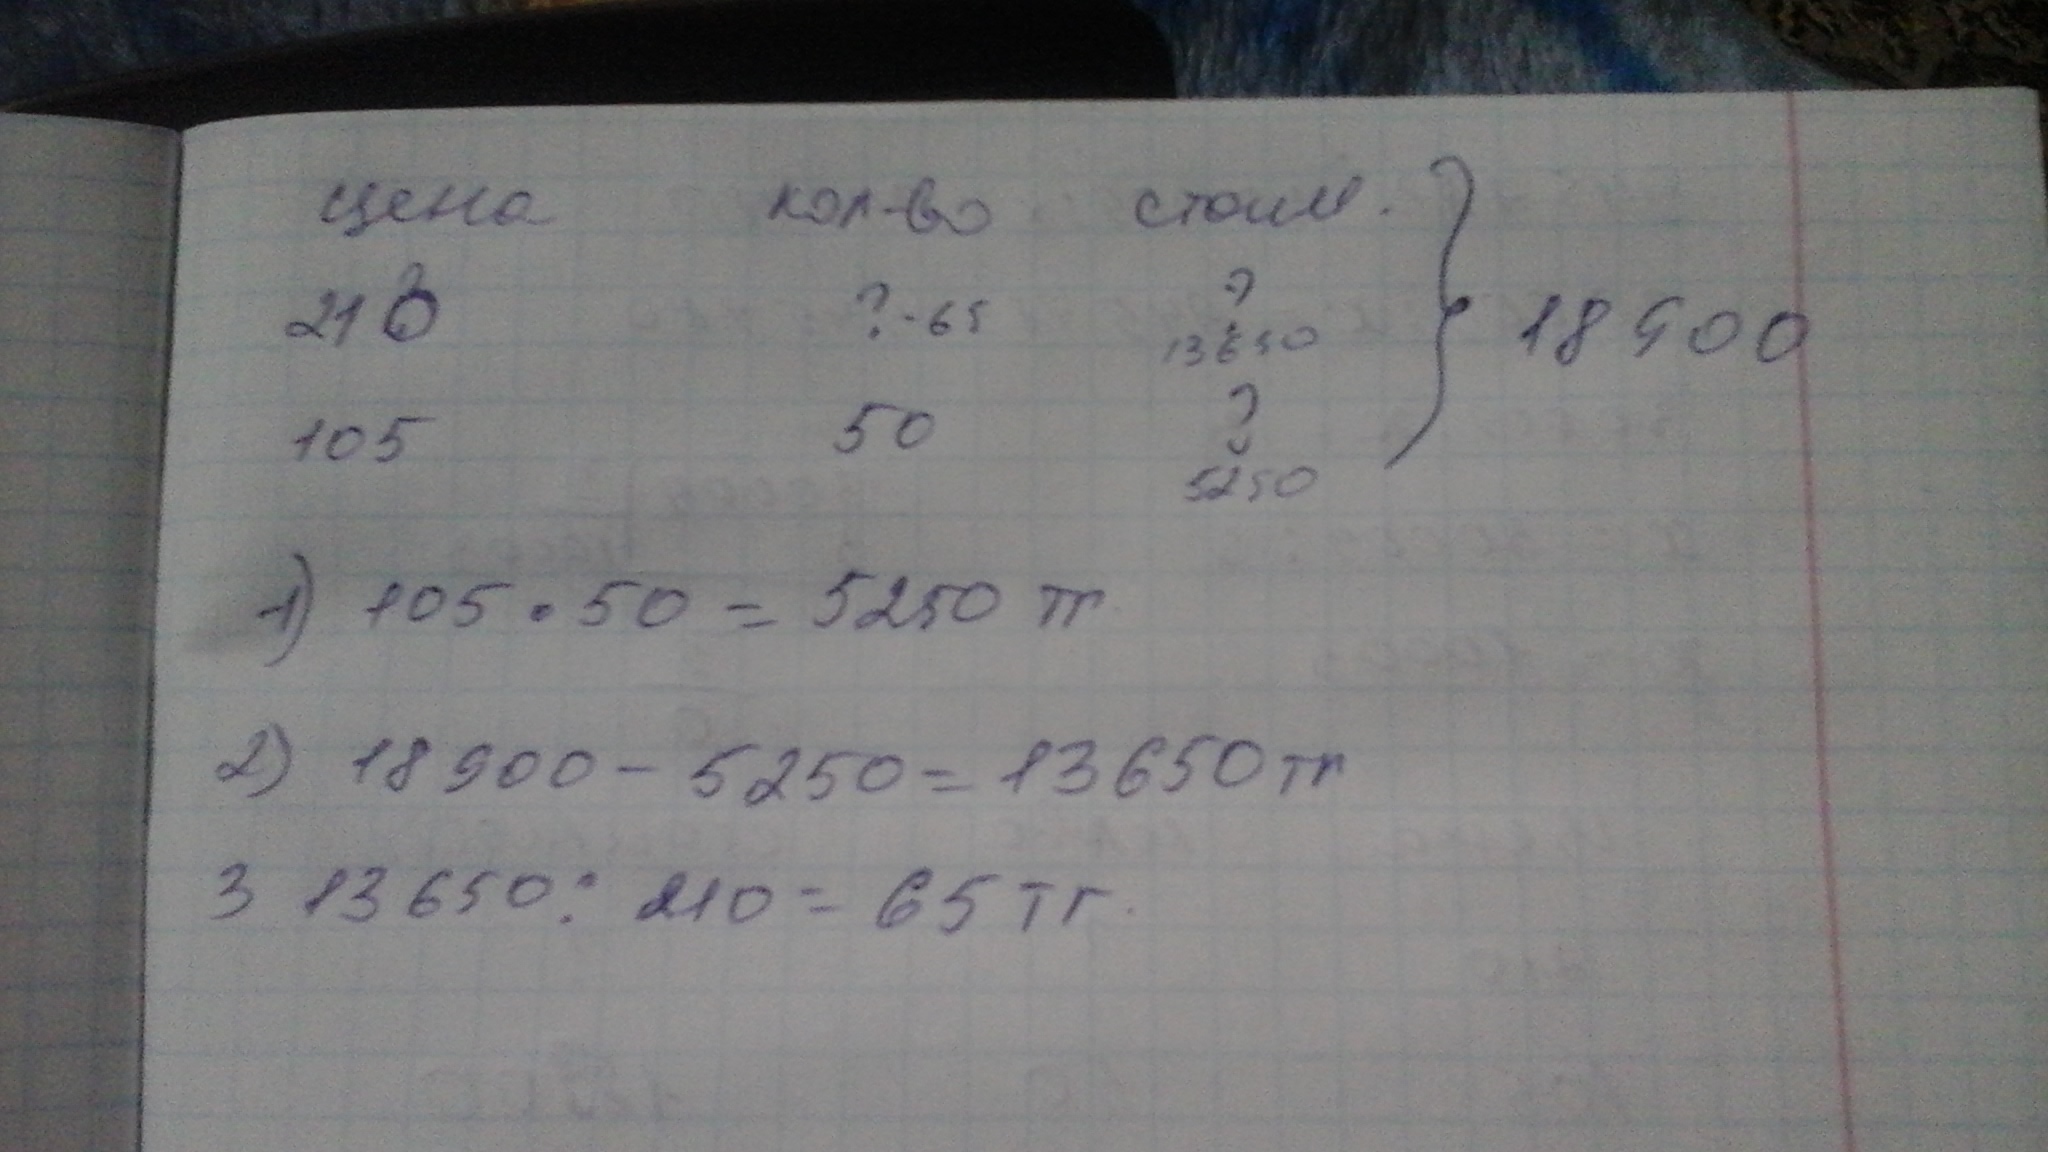 цена кол-во стоим.
210 ? - 65 ? 13650
18900
105 50 ? 5250
1) 105 • 50 = 5250 тг
2) 18900 - 5250 = 13650 тг
3 13650 : 210 = 65 тг.